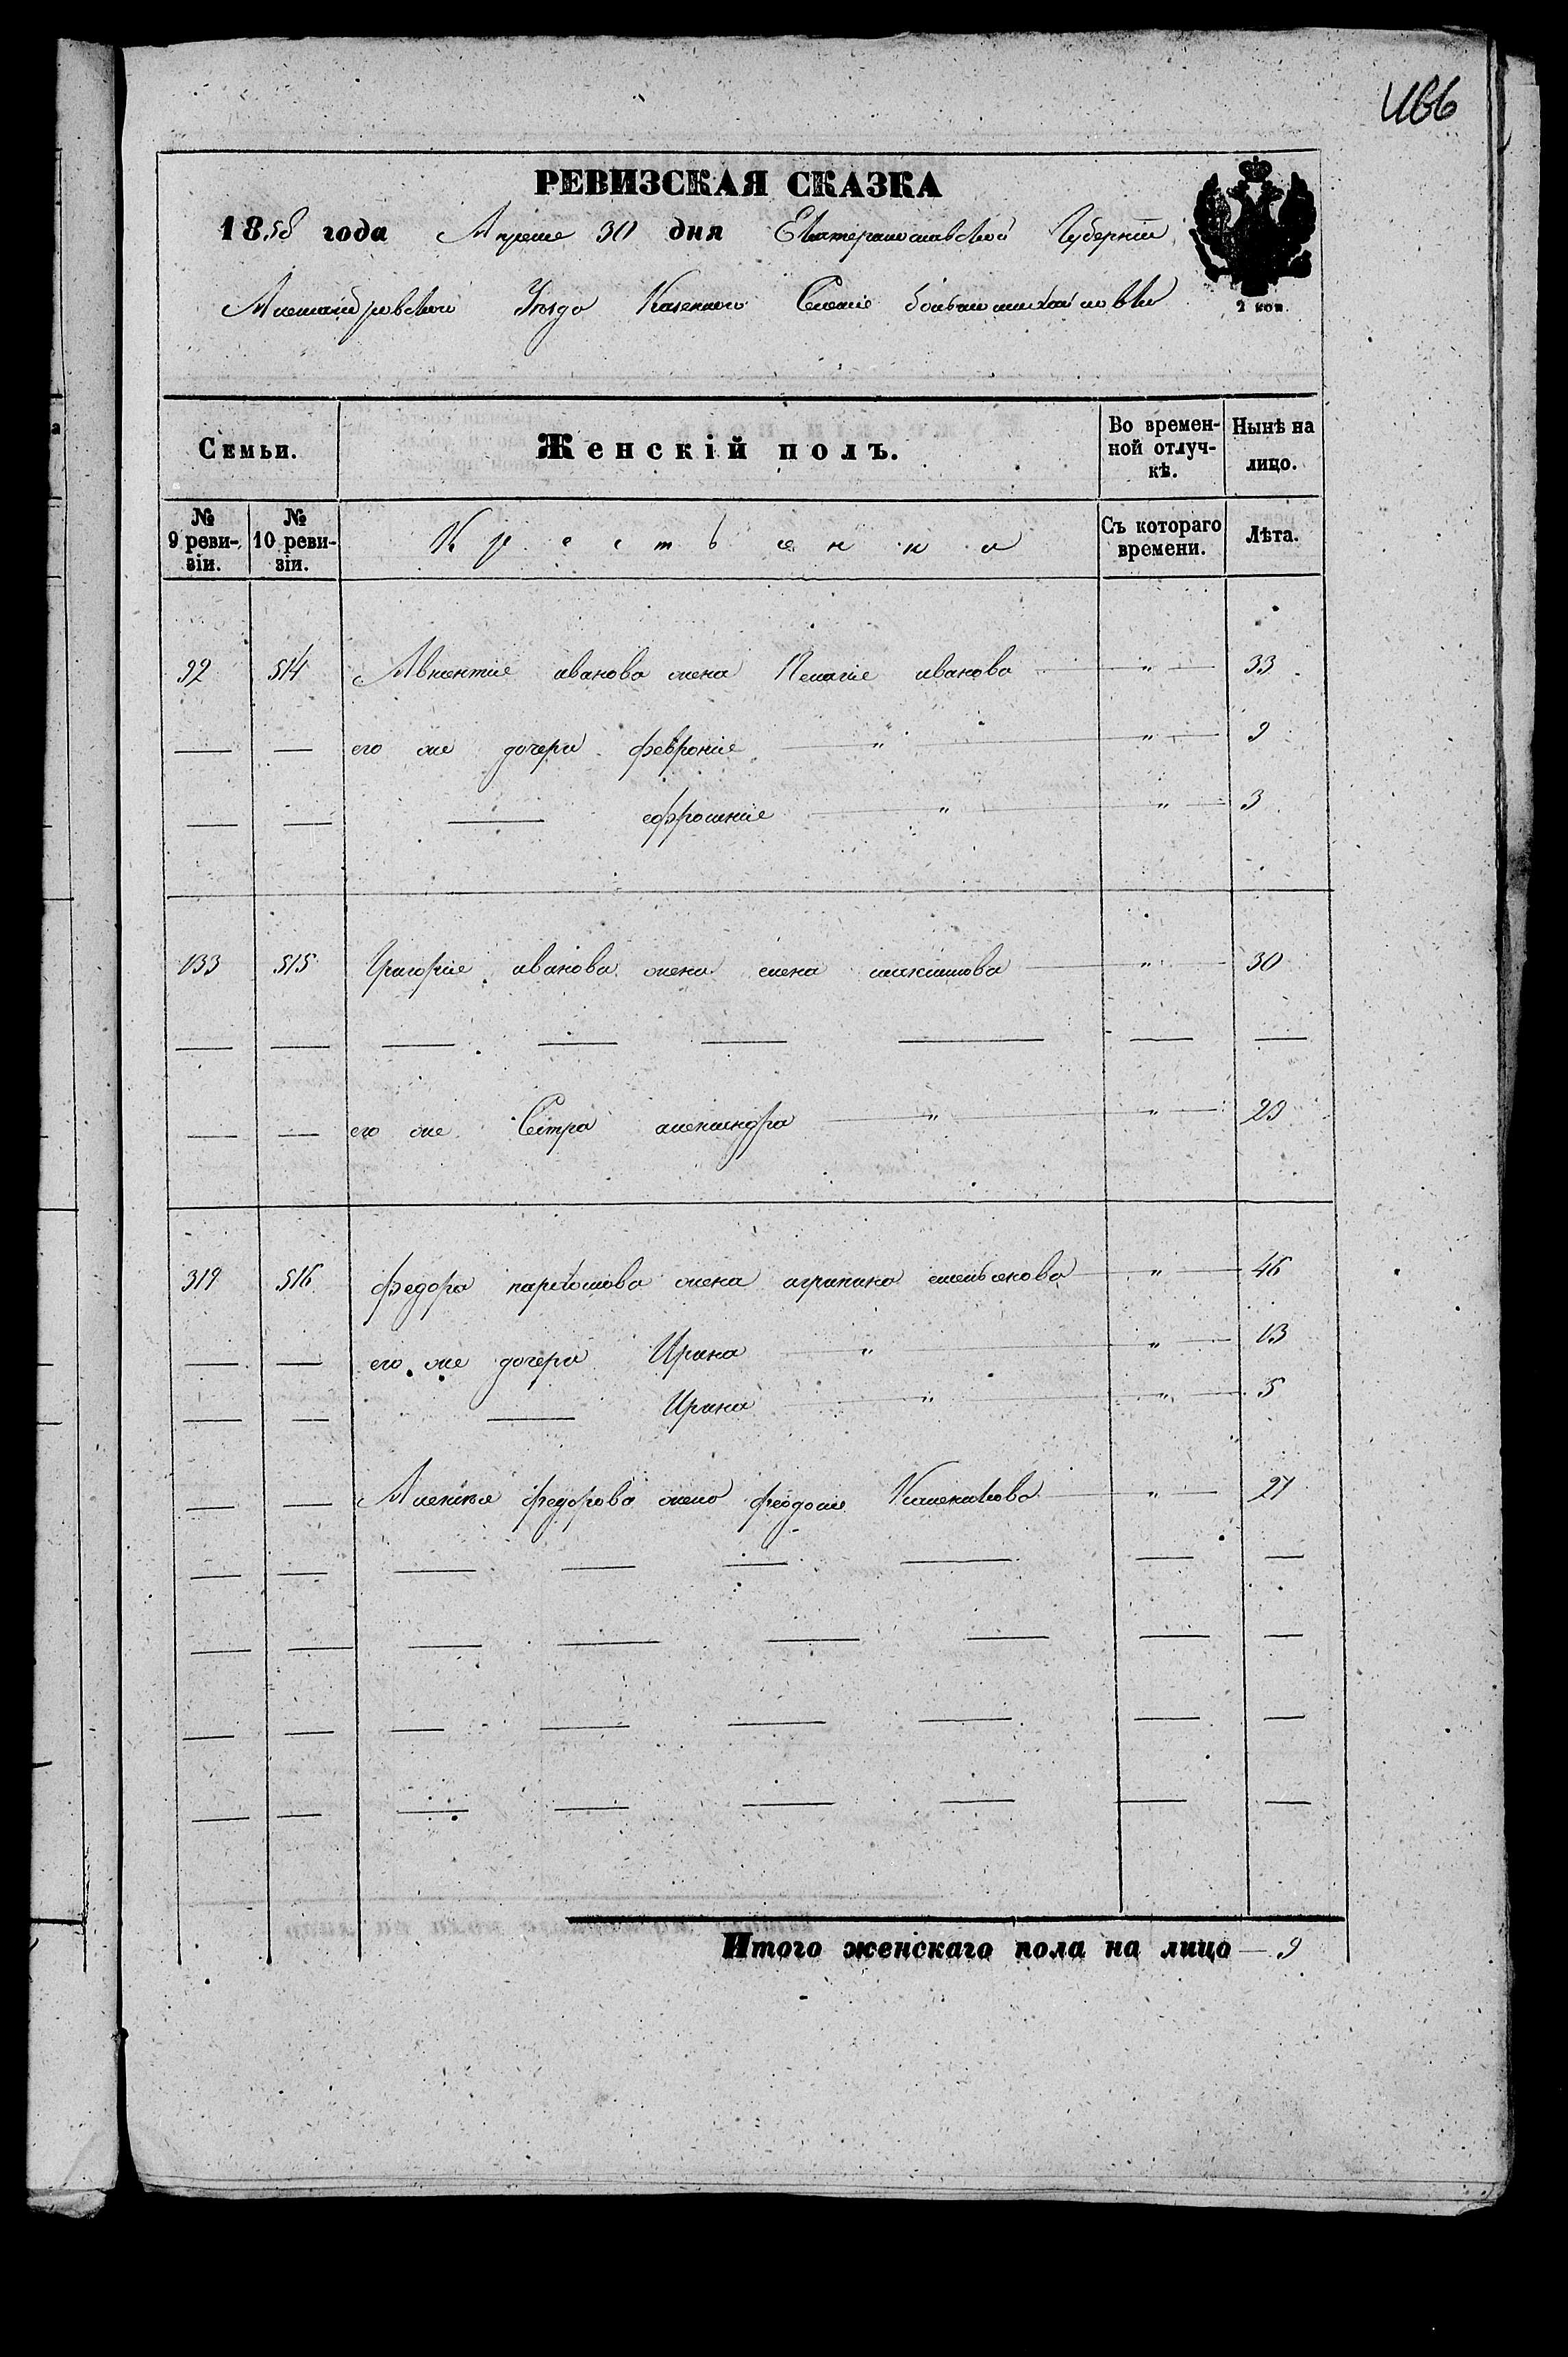 466
РЕВИЗСКАЯ СКАЗКА
1858 года Апреля 30 дня Екатеринославской Губернiи
Александровского Уезда Казенного Селенiя Большомихайловки
2 коп.
Семьи.
Женскiй полъ.
Во времен-
ной отлуч-
кѣ.
Нынѣ на
лицо.
№
9 реви-
зiи.
№
10 реви-
зiи.
Крестьянки
Съ котораго
времени.
Лѣта.
92 514 Авксентiя иванова жена Пелагiя иванова — " — 33
— — его же дочери февронiя — " — " — 9
— — — ефросинiя — " — " — 3
133 515 Григорiя иванова жена елена максимова — " — 30
— — — — — — — —
— — его же Сестра александра — " — " — 29
319 516 федора парфомова жена агрипина емельянова — " — 46
— — его же дочери Ирина — " — " — 13
— — — Ирина — " — " — 5
— — Алексея федорова жена феодосiя — " — 21
— — — — — — — —
— — — — — — — —
— — — — — — — —
— — — — — — — —
Итого женскаго пола на лицо — 9